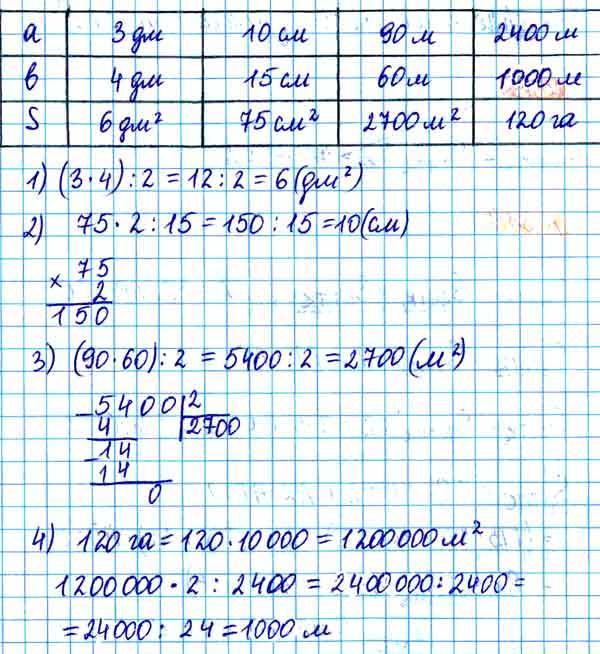 a 3 дм 10 см 90 м 2400 м
в 4 дм 15 см 60 м 1000 м
S 6 дм² 75 см² 2700 м² 120 га
1) (3·4):2 = 12:2 = 6(дм²)
2) 75·2:15 = 150:15 = 10(см)
× 75
2
150
3) (90·60):2 = 5400:2 = 2700(м²)
-5400|2
4 2700
-14
14
0
4) 120 га = 120·10000 = 1200000 м²
1200000·2 : 2400 = 2400000:2400 =
= 24000 : 24 = 1000 м